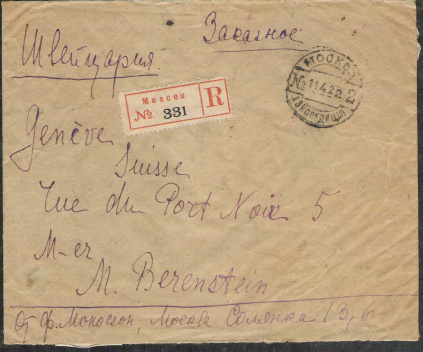 Заказное
Швейцария
МОСКВА
11.4.22
ЭКСПЕДИЦИЯ
Moscou
№ 331
R
Genève
Suisse
Rue du Port Noir 5
M-er
M. Berenstein
От Ф. Моносзон, Москва Солянка 13, 6